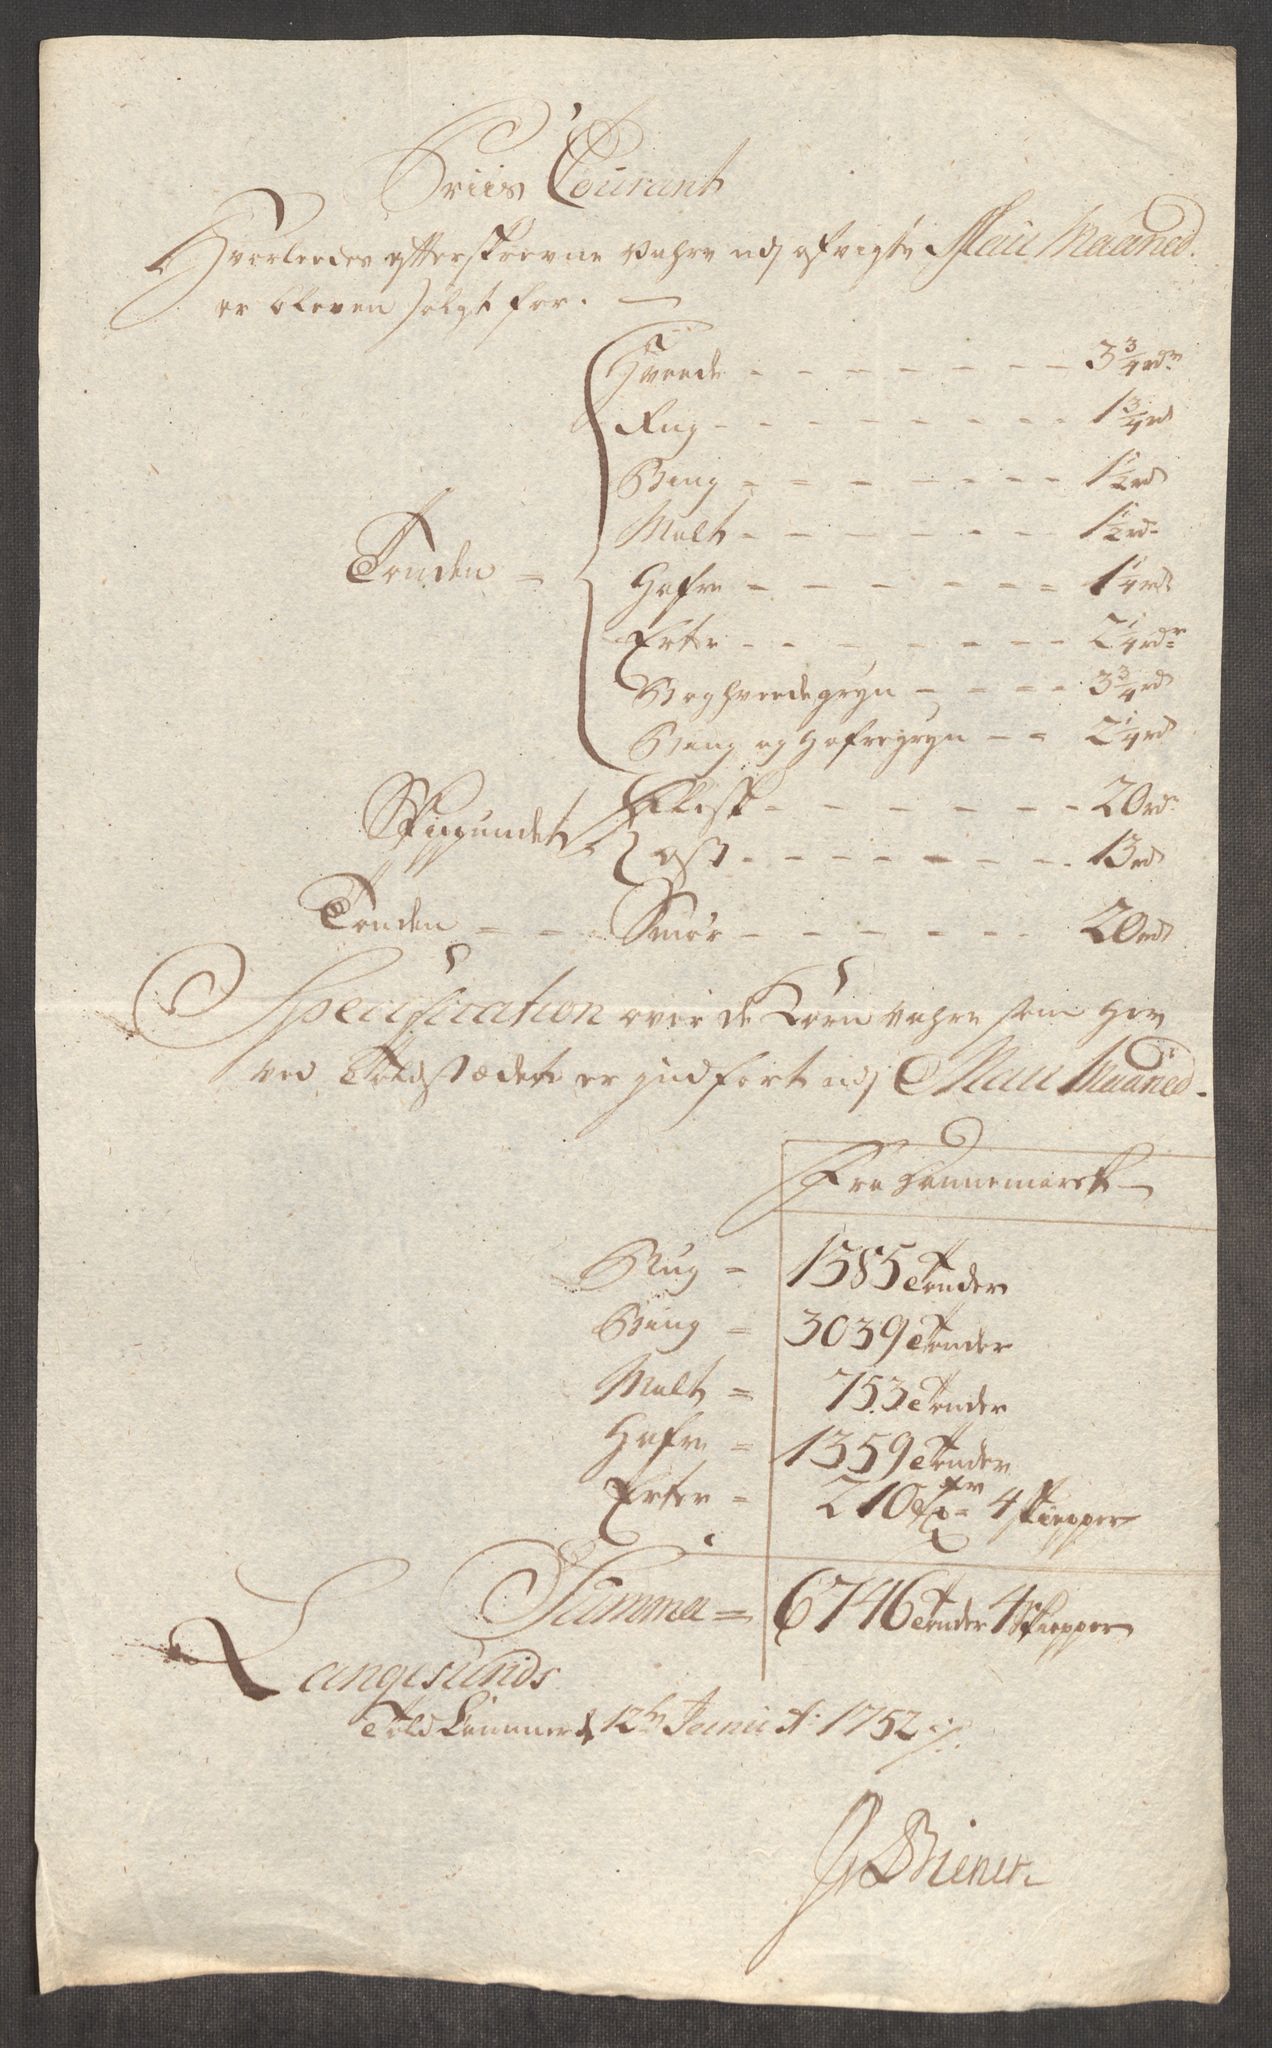 Priis Courant
Hvorleedes efterskrevne Vahre udj afvigte Maii Maaned
er bleven solgt for.
Hveede - - - - - - - - 3 3/4 rdr
Rug - - - - - - - - 1 3/4 rd
Biug - - - - - - - 1 1/2 rd
Malt - - - - - - - 1 1/2 rd
Tønden = Hafre - - - - - - - 1 1/4 rd
Erter - - - - - - - 2 1/4 rdr
Boghveedegryn - - - - 3 3/4 rd
Biug og Hafregryn - - 2 1/4 rd
Skippundet Flesk - - - - - - - 20 rd
Ost - - - - - - - - 13 rd
Tønden - - - Smør - - - - - - 20 rd
Specification over de Korn Vahre som her
ved Toldstædet er indført udj Maii Maaned.
Fra Dannemarck
Rug = 1385 Tønder
Biug = 3039 Tønder
Malt = 753 Tønder
Hafre = 1359 Tønder
Erter = 210 Tr 4 Skiepper
Summa = 6746 Tønder 4 Skiepper
Langesunds
Told Kammer d 12th Junii Ao 1752